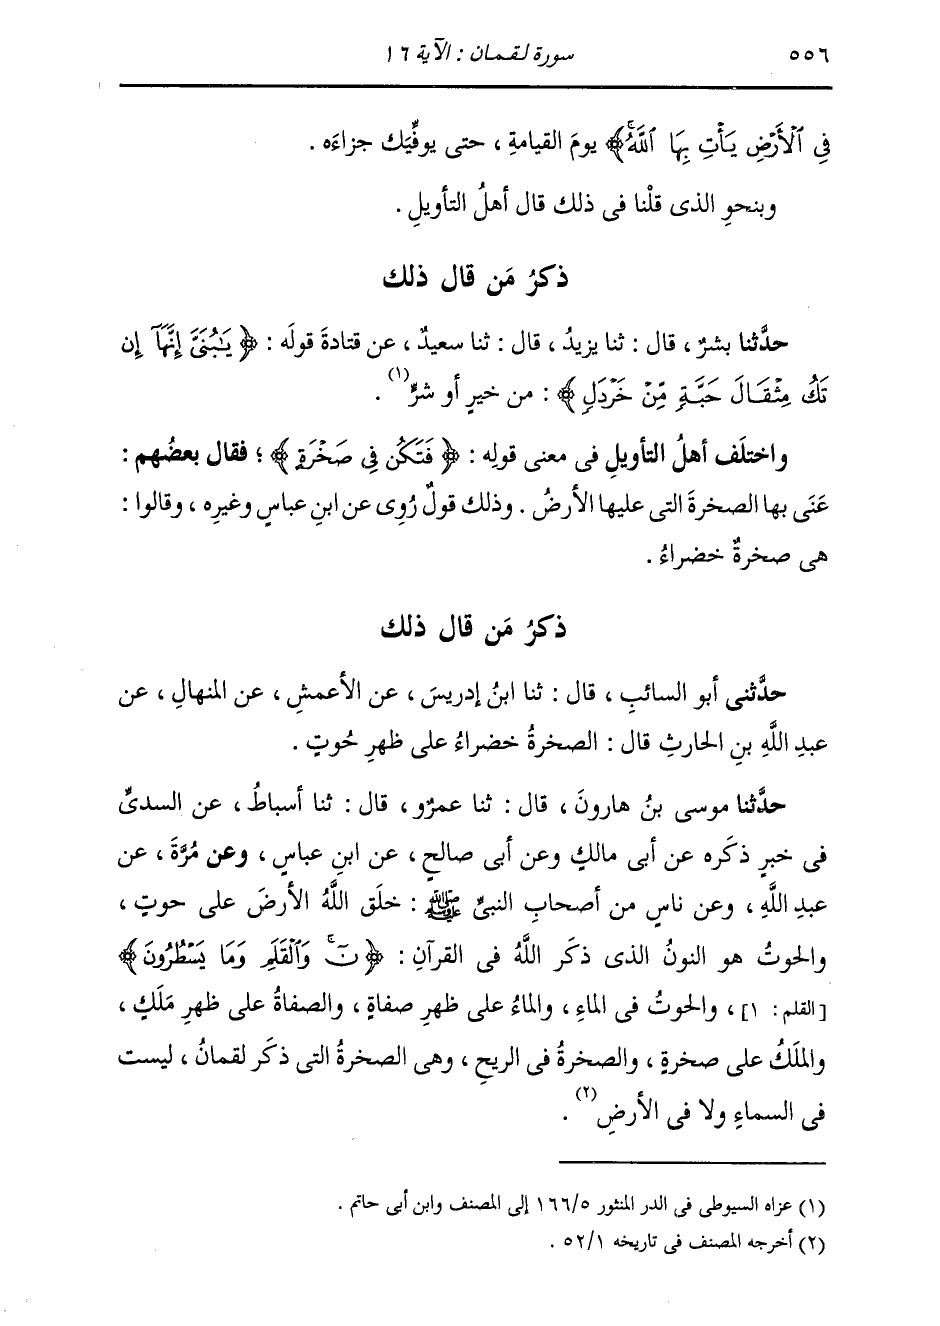 ٥٥٦ سورة لقمان : الآية ١٦
فِي ٱلْأَرْضِ يَأْتِ بِهَا ٱللَّهُۚ﴾ يومَ القيامةِ ، حتى يوفِّيَك جزاءَه .
وبنحوِ الذى قلْنا فى ذلك قال أهلُ التأويلِ .
ذكرُ مَن قال ذلك
حدَّثنا بشرٌ ، قال : ثنا يزيدُ ، قال : ثنا سعيدٌ ، عن قتادةَ قولَه : ﴿ يَٰبُنَيَّ إِنَّهَآ إِن
تَكُ مِثْقَالَ حَبَّةٍ مِّنْ خَرْدَلٍ ﴾ : من خيرٍ أو شرٍّ(١) .
واختلَف أهلُ التأويلِ فى معنى قولِه : ﴿ فَتَكُن فِي صَخْرَةٍ ﴾ ؛ فقال بعضُهم :
عَنَى بها الصخرةَ التى عليها الأرضُ . وذلك قولٌ رُوِى عن ابنِ عباسٍ وغيرِه ، وقالوا :
هى صخرةٌ خضراءُ .
ذكرُ مَن قال ذلك
حدَّثنى أبو السائبِ ، قال : ثنا ابنُ إدريسَ ، عن الأعمشِ ، عن المنهالِ ، عن
عبدِ اللَّهِ بنِ الحارثِ قال : الصخرةُ خضراءُ على ظهرِ حُوتٍ .
حدَّثنا موسى بنُ هارونَ ، قال : ثنا عمرٌو ، قال : ثنا أسباطُ ، عن السدىِّ
فى خبرٍ ذكَره عن أبى مالكٍ وعن أبى صالحٍ ، عن ابنِ عباسٍ ، وعن مُرَّةَ ، عن
عبدِ اللَّهِ ، وعن ناسٍ من أصحابِ النبىِّ ﷺ : خلَق اللَّهُ الأرضَ على حوتٍ ،
والحوتُ هو النونُ الذى ذكَر اللَّهُ فى القرآنِ : ﴿ نٓۚ وَٱلْقَلَمِ وَمَا يَسْطُرُونَ ﴾
[القلم: ١] ، والحوتُ فى الماءِ ، والماءُ على ظهرِ صفاةٍ ، والصفاةُ على ظهرِ مَلَكٍ ،
والملَكُ على صخرةٍ ، والصخرةُ فى الريحِ ، وهى الصخرةُ التى ذكَر لقمانُ ، ليست
فى السماءِ ولا فى الأرضِ(٢) .
(١) عزاه السيوطى فى الدر المنثور ١٦٦/٥ إلى المصنف وابن أبى حاتم .
(٢) أخرجه المصنف فى تاريخه ٥٢/١ .